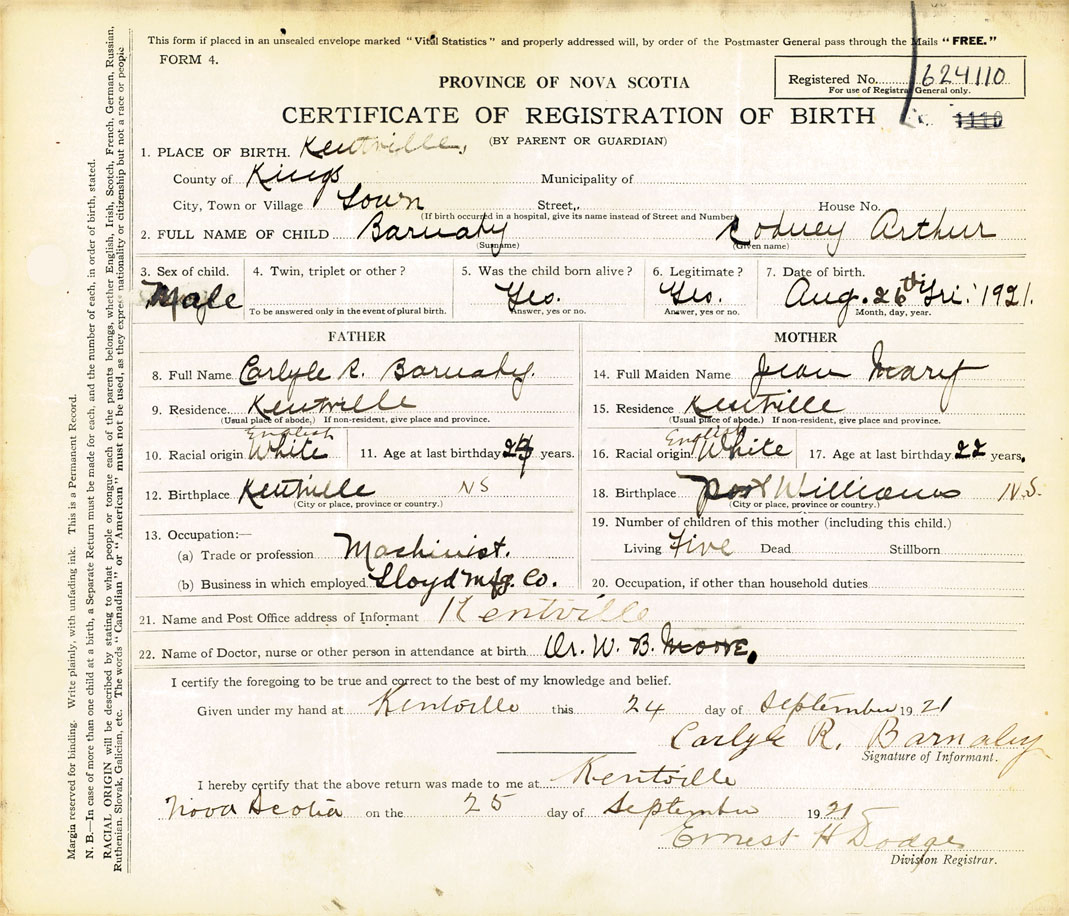 This form if placed in an unsealed envelope marked "Vital Statistics" and properly addressed will, by order of the Postmaster General pass through the Mails "FREE."
FORM 4.
PROVINCE OF NOVA SCOTIA
Registered No. 624110
For use of Registrar General only.
CERTIFICATE OF REGISTRATION OF BIRTH
1110
(BY PARENT OR GUARDIAN)
1. PLACE OF BIRTH. Kentville,
County of Kings Municipality of
City, Town or Village Town Street, House No.
(If birth occurred in a hospital, give its name instead of Street and Number)
2. FULL NAME OF CHILD Barnaby Rodney Arthur
(Surname) (Given name)
3. Sex of child. 4. Twin, triplet or other? 5. Was the child born alive? 6. Legitimate? 7. Date of birth.
Male Yes. Yes. Aug. 26th Fri. 1921.
To be answered only in the event of plural birth. Answer, yes or no. Answer, yes or no. Month, day, year.
FATHER MOTHER
8. Full Name Carlyle R. Barnaby. 14. Full Maiden Name Jean Mary
9. Residence Kentville 15. Residence Kentville
(Usual place of abode.) If non-resident, give place and province. (Usual place of abode.) If non-resident, give place and province.
English English
10. Racial origin White 11. Age at last birthday years. 16. Racial origin White 17. Age at last birthday 22 years.
12. Birthplace Kentville NS 18. Birthplace Port Williams N.S.
(City or place, province or country.) (City or place, province or country.)
13. Occupation:— 19. Number of children of this mother (including this child.)
(a) Trade or profession Machinist. Living Five Dead Stillborn
(b) Business in which employed Lloyd Mfg. Co. 20. Occupation, if other than household duties
21. Name and Post Office address of Informant Kentville
22. Name of Doctor, nurse or other person in attendance at birth Dr. W. B. Moore.
I certify the foregoing to be true and correct to the best of my knowledge and belief.
Given under my hand at Kentville this 24 day of September 1921
Carlyle R. Barnaby
Signature of Informant.
I hereby certify that the above return was made to me at Kentville
Nova Scotia on the 25 day of September 1921
Ernest H Dodge
Division Registrar.
Margin reserved for binding. Write plainly, with unfading ink. This is a Permanent Record.
N. B.—In case of more than one child at a birth, a Separate Return must be made for each, and the number of each, in order of birth, stated.
RACIAL ORIGIN will be described by stating to what people or tongue each of the parents belongs, whether English, Irish, Scotch, French, German, Russian,
Ruthenian, Slovak, Galician, etc. The words "Canadian" or "American" must not be used, as they express nationality or citizenship but not a race or people